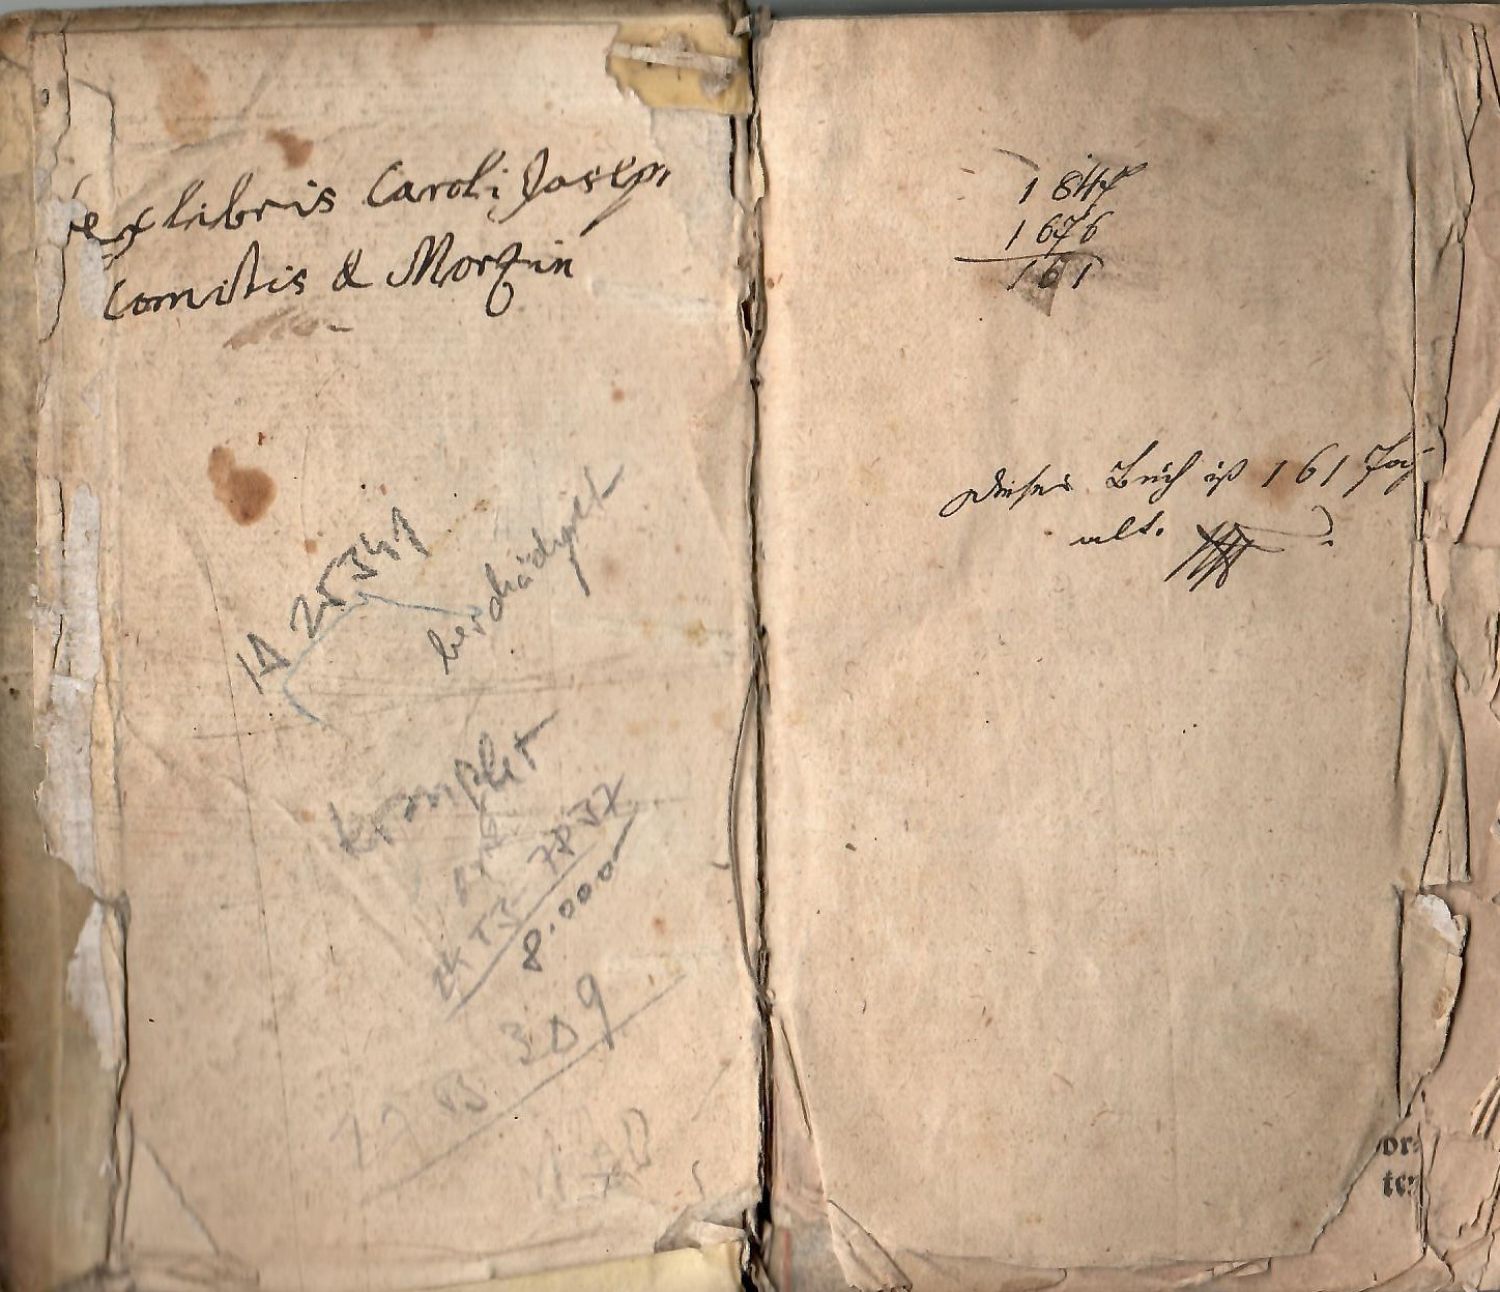 ex libris Caroli Joseph
Comitis de Morzin
IA 25341
beschädiget
komplet
8.000
309
1847
1676
161
Dieses Buch ist 161 Jahr
alt.